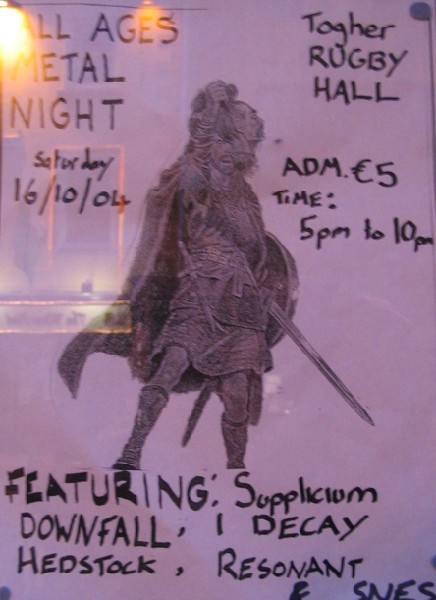 ALL AGES
METAL
NIGHT
Saturday
16/10/04
Togher
RUGBY
HALL
ADM. €5
TIME:
5pm to 10pm
FEATURING: Supplicium
DOWNFALL, I DECAY
HEDSTOCK, RESONANT
& SNES